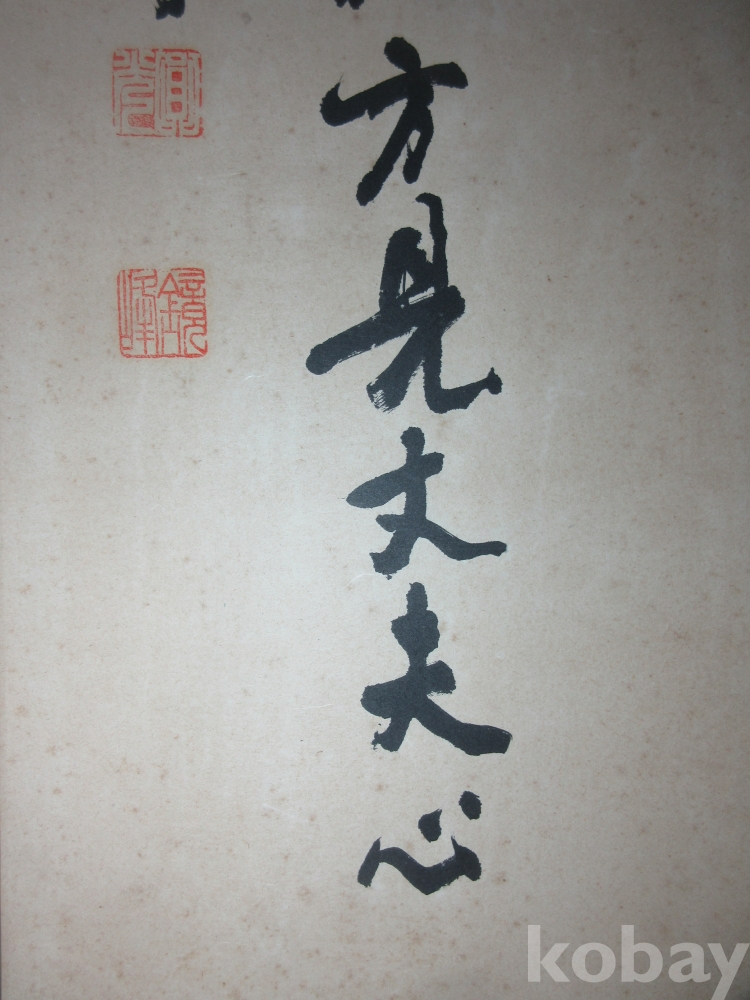 方見丈夫心
鏡峰
kobay